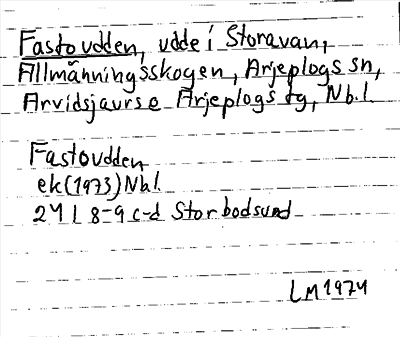 Fastoudden, udde i Storavan,
Allmänningsskogen, Arjeplogs sn,
Arvidsjaurs o Arjeplogs tg, Nb.l.
Fastoudden
ek (1973) Nbl.
24 I 8-9 c-d Storbodsund
LM 1974